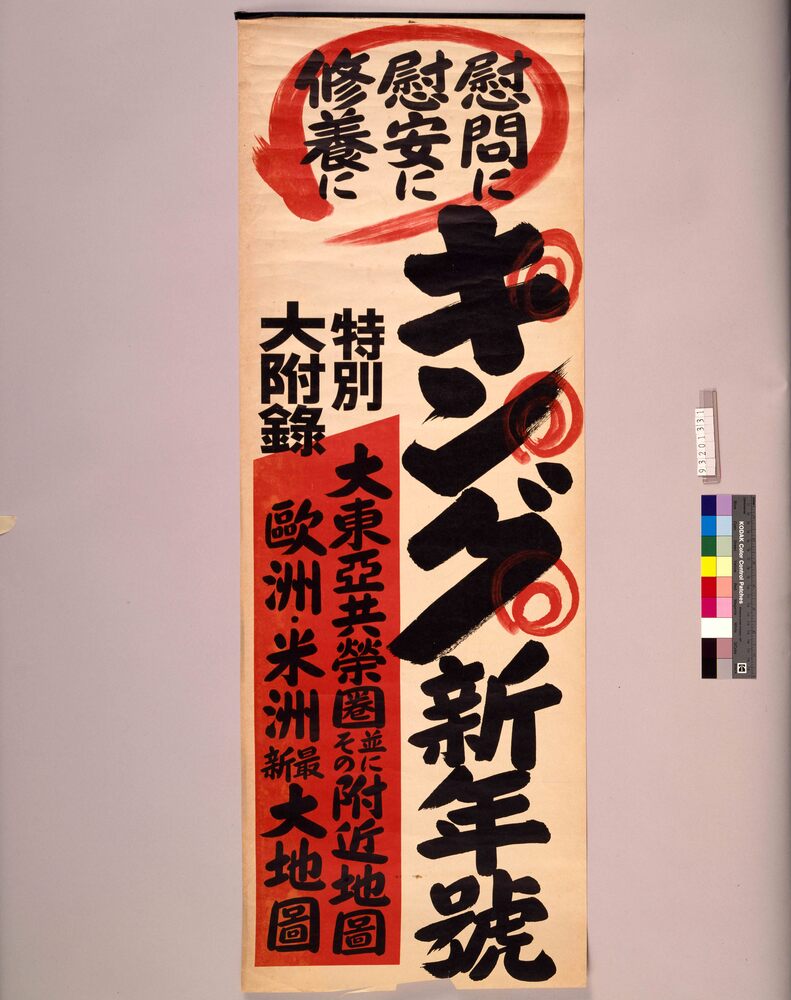 慰問に
慰安に
修養に
キング新年號
特別
大附錄
大東亞共榮圈並にその附近地圖
歐洲・米洲最新大地圖
9320131
KODAK Color Control Patches